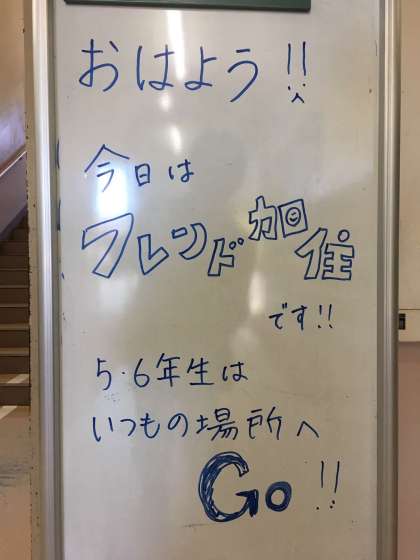 おはよう!!
今日は
フレンド加住
です!!
5・6年生は
いつもの場所へ
Go!!